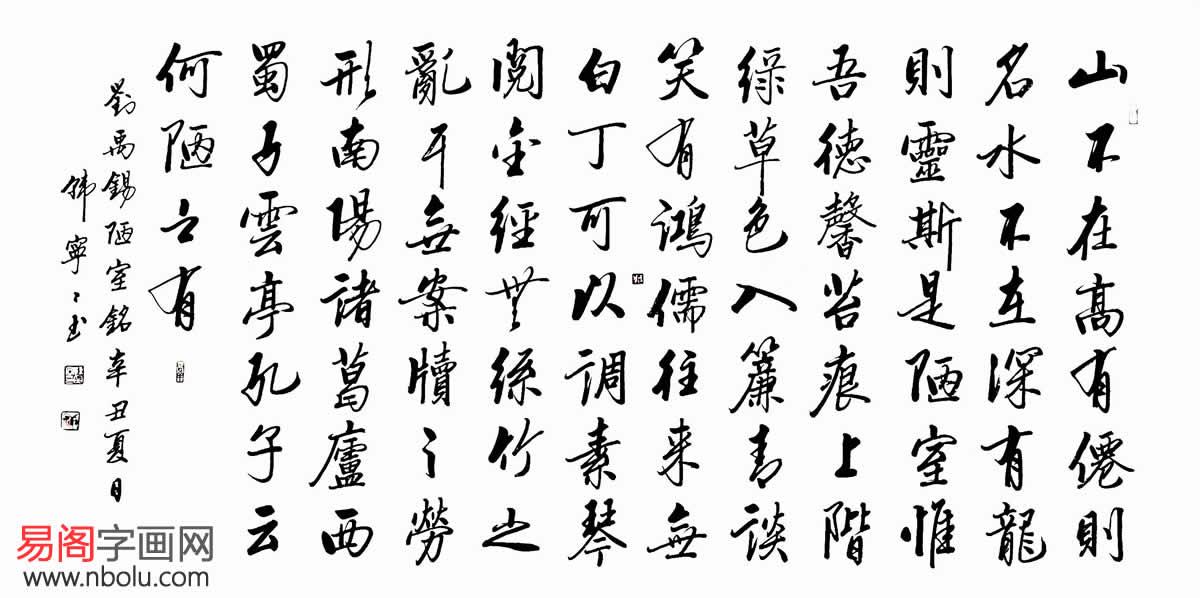 山不在高有僊則
名水不在深有龍
則靈斯是陋室惟
吾德馨苔痕上階
綠草色入簾青談
笑有鴻儒往来無
白丁可以調素琴
閱金經無絲竹之
亂耳無案牘之勞
形南陽諸葛廬西
蜀子雲亭孔子云
何陋之有
劉禹錫陋室銘辛丑夏日
韩寧〻书
易阁字画网
www.nbolu.com